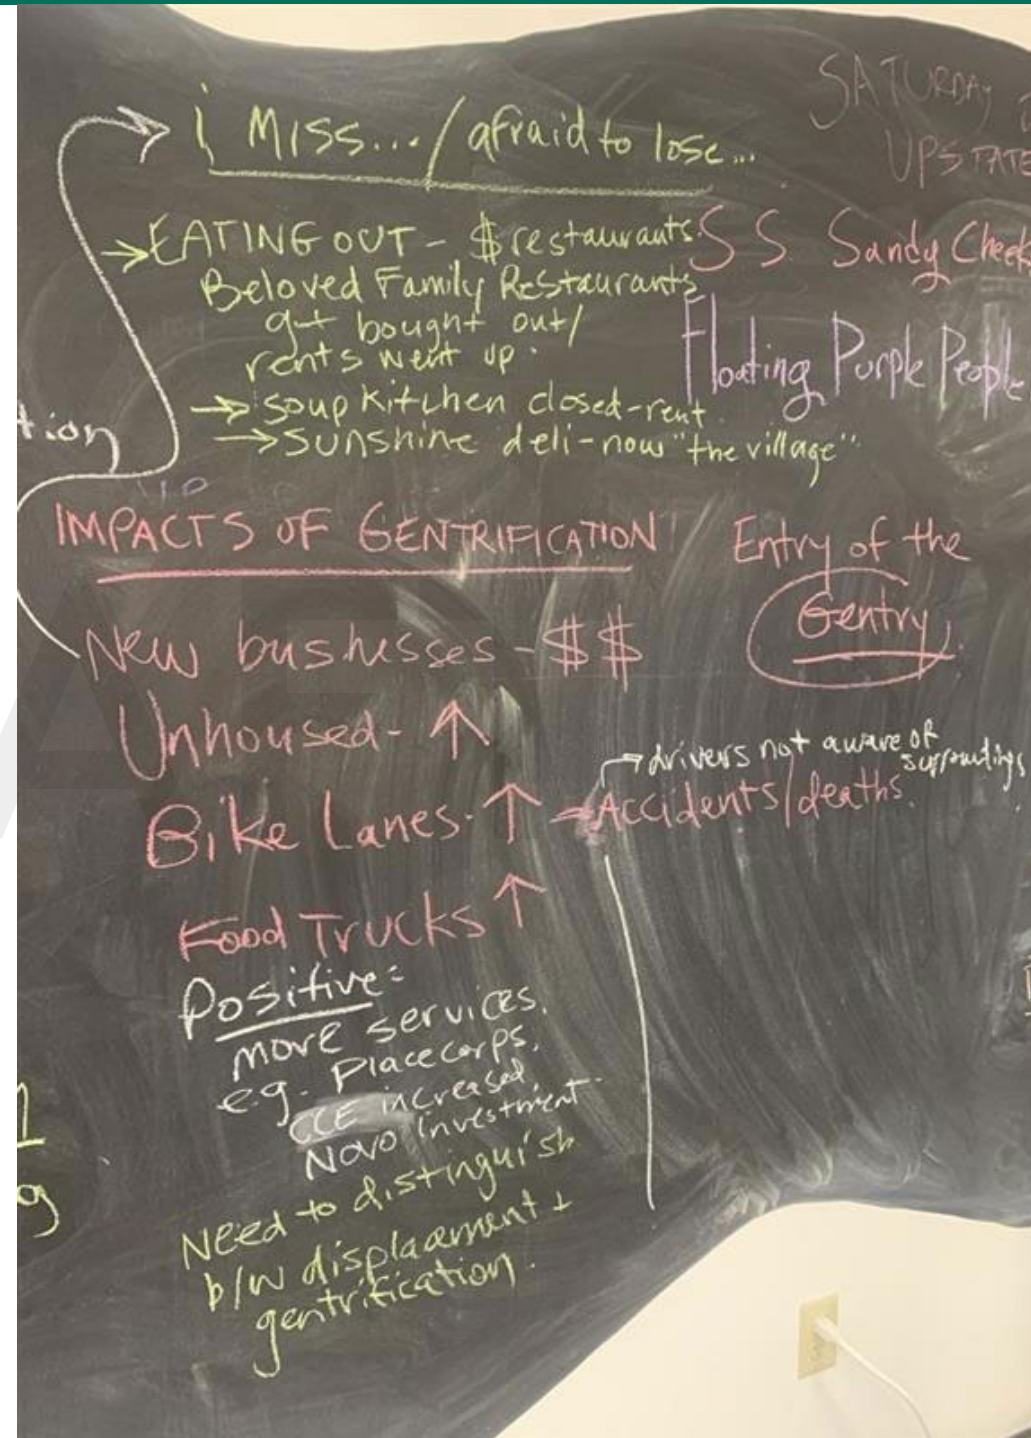 i MISS... / afraid to lose...
SATURDAY
UPSTATE
→ EATING OUT - $ restaurants.
Beloved Family Restaurants
got bought out/
rents went up.
→ soup kitchen closed-rent
→ sunshine deli - now "the village"
S S Sandy Cheeks
Floating Purple People
tion
IMPACTS OF GENTRIFICATION
Entry of the
Gentry
New businesses - $$
Unhoused - ↑
Bike Lanes - ↑ → Accidents/deaths.
→ drivers not aware of
surroundings
Food Trucks ↑
Positive:
more services.
e.g. Placecorps.
CCE increased
Novo investment.
Need to distinguish
b/w displacement +
gentrification.
g